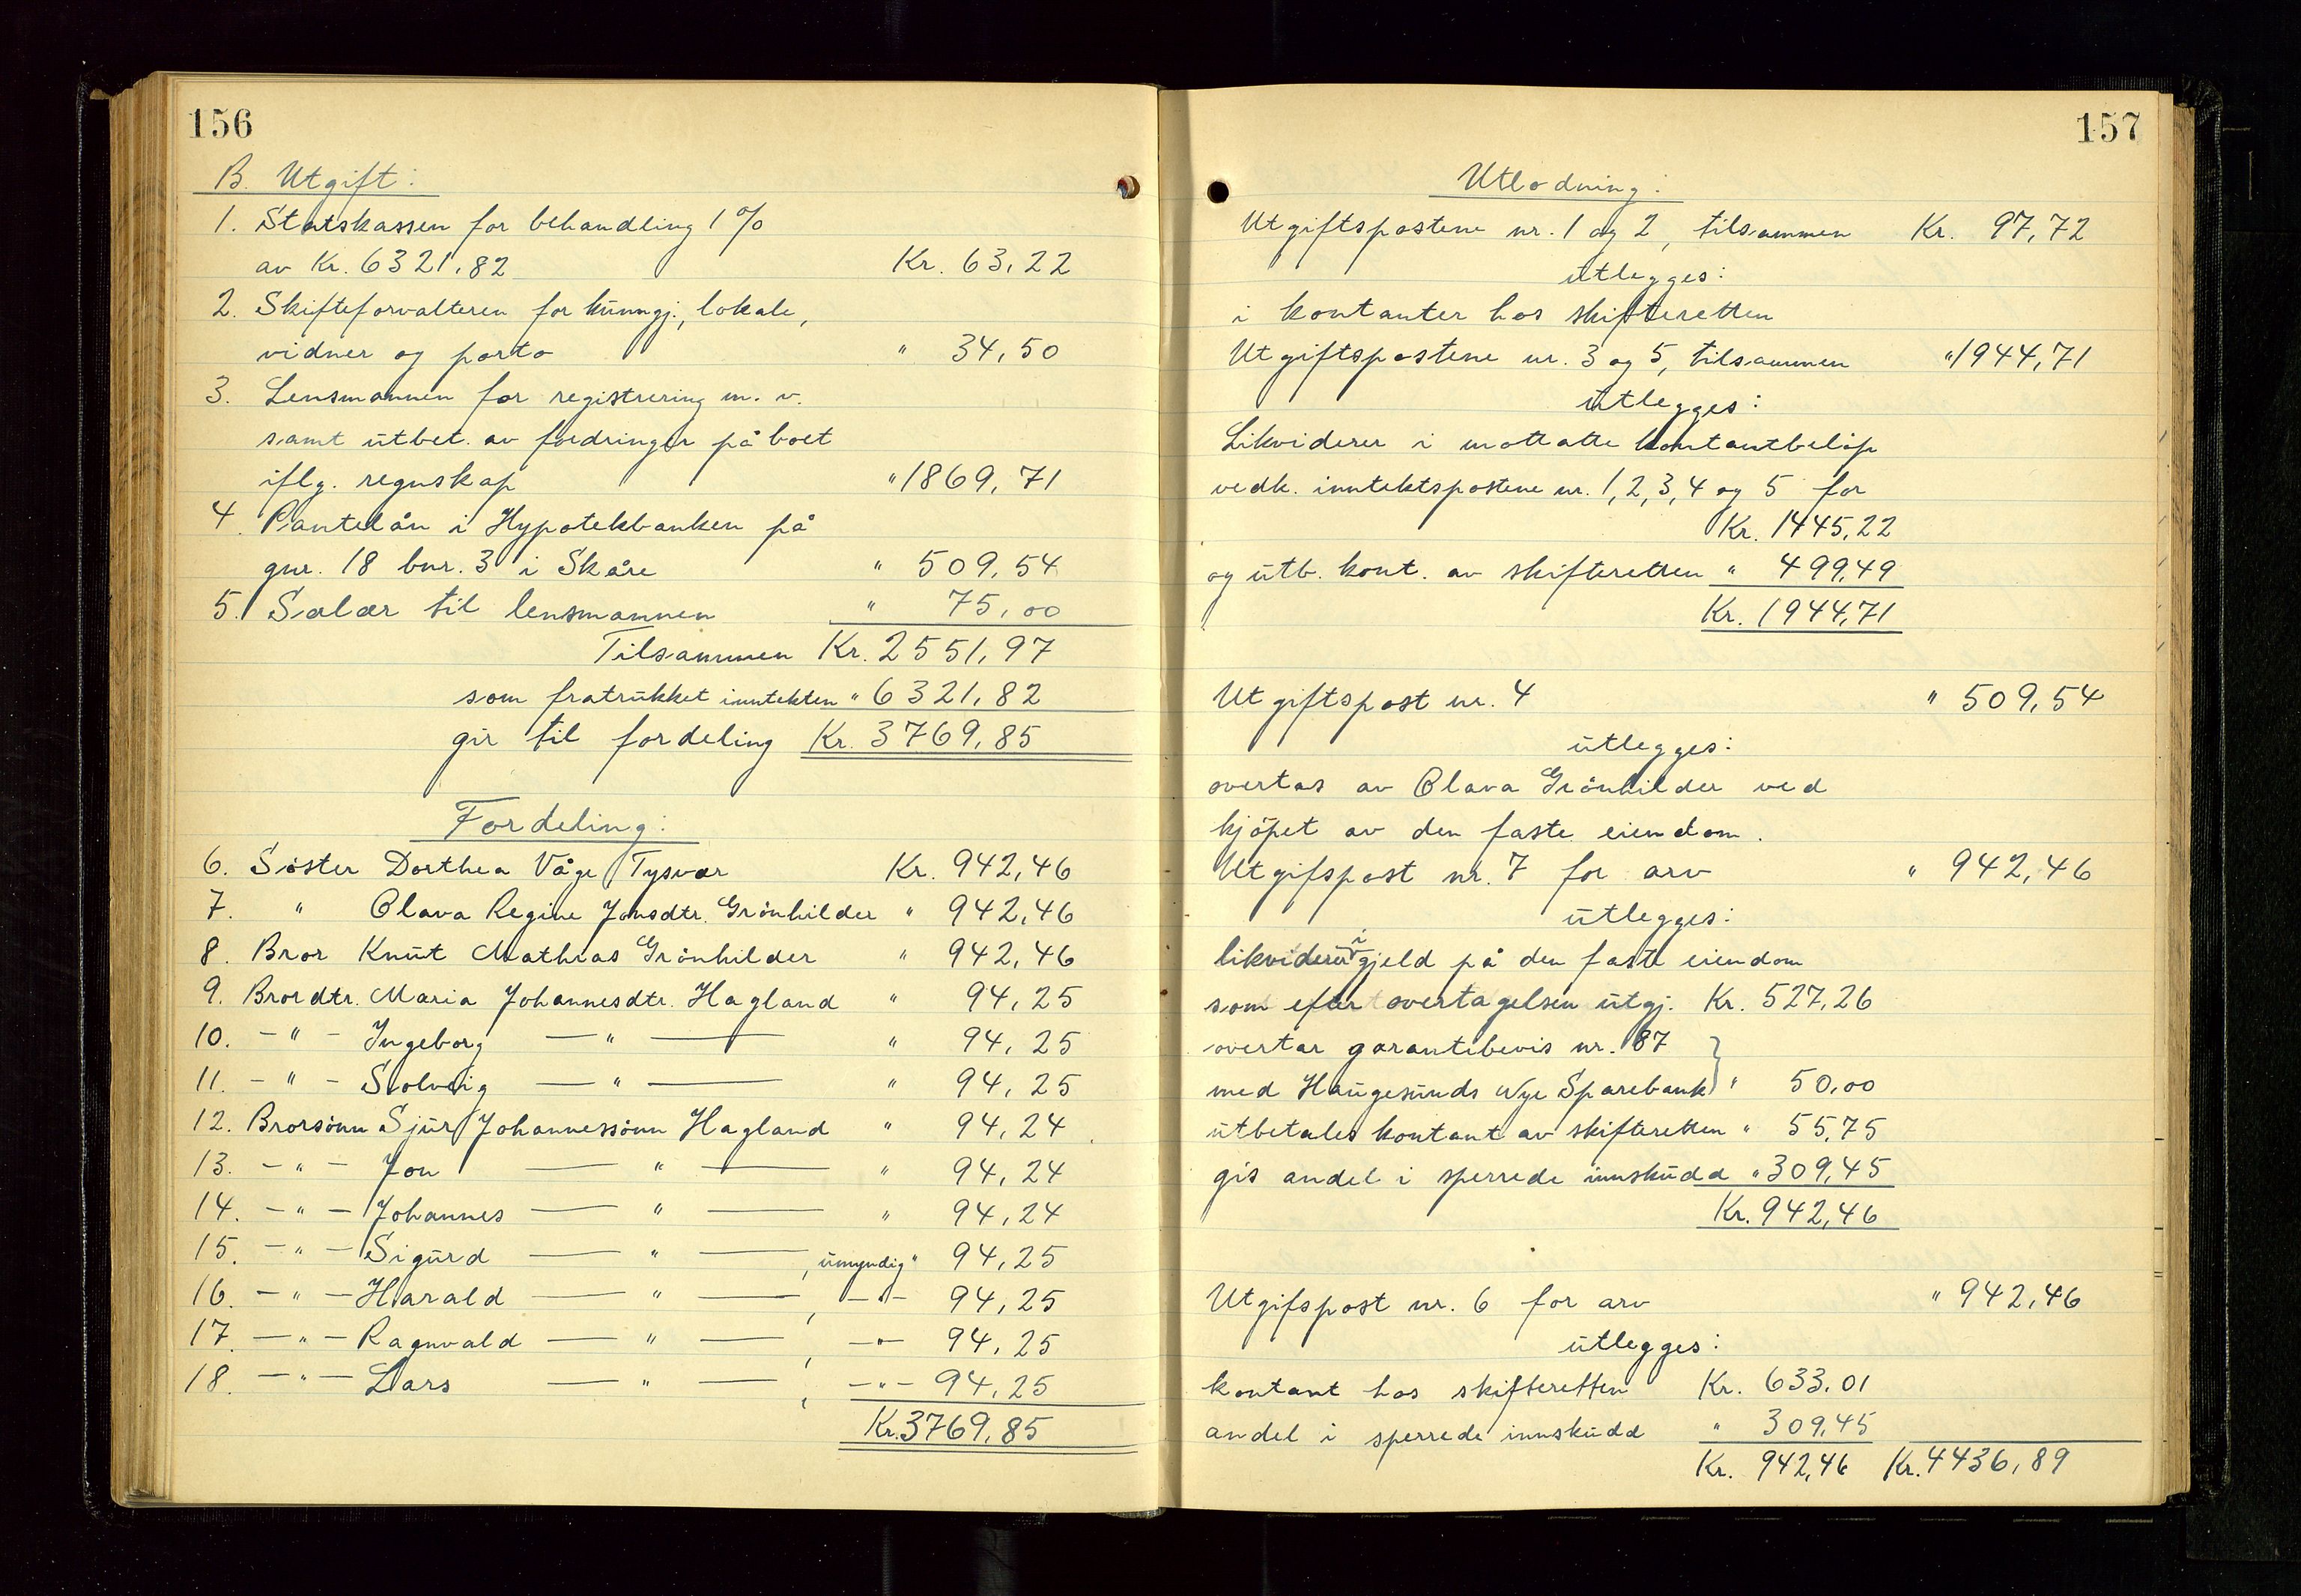 156
B. Utgift:
1. Statskassen for behandling 1%
av Kr. 6321,82 Kr. 63,22
2. Skifteforvalteren for kunngj., lokale,
vidner og porto " 34,50
3. Lensmannen for registrering m. v.
samt utbet. av fordringer på boet
iflg. regnskap " 1869,71
4. Pantelån i Hypotekbanken på
gnr. 18 bnr. 3 i Skåre " 509,54
5. Salær til lensmannen " 75,00
Tilsammen Kr. 2551,97
som fratrukket inntekten " 6321,82
gir til fordeling Kr. 3769,85
Fordeling:
6. Søster Dorthea Våge Tysvær Kr. 942,46
7. " Olava Regine Jonsdtr. Grönhilder " 942,46
8. Bror Knut Mathias Grönhilder " 942,46
9. Brordtr. Maria Johannesdtr. Hagland " 94,25
10. - " - Ingeborg — " — " 94,25
11. - " - Solveig — " — " 94,25
12. Brorsönn Sjur Johannessönn Hagland " 94,24
13. - " - Jon — " — " 94,24
14. - " - Johannes — " — " 94,24
15. - " - Sigurd — " —, umyndig " 94,25
16. - " - Harald — " —, - " - 94,25
17. - " - Ragnvald — " —, - " - 94,25
18. - " - Lars — " —, - " - 94,25
Kr. 3769,85
157
Utlodning:
Utgiftspostene nr. 1 og 2, tilsammen Kr. 97,72
utlegges:
i kontanter hos skifteretten
Utgiftspostene nr. 3 og 5, tilsammen " 1944,71
utlegges:
Likviderer i mottatte kontantbeløp
vedk. inntektspostene nr. 1, 2, 3, 4 og 5 for
Kr. 1445,22
og utb. kont. av skifteretten " 499,49
Kr. 1944,71
Utgiftspost nr. 4 " 509,54
utlegges:
overtas av Olava Grönhilder ved
kjöpet av den faste eiendom.
Utgifspost nr. 7 for arv " 942,46
utlegges:
i gjeld på den faste eiendom
som efter overtagelsen utgj. Kr. 527,26
overtar garantibevis nr. 87 }
med Haugesunds Nye Sparebank } " 50,00
utbetales kontant av skifteretten " 55,75
gis andel i sperrede innskudd " 309,45
Kr. 942,46
Utgifspost nr. 6 for arv " 942,46
utlegges:
kontant hos skifteretten Kr. 633,01
andel i sperrede innskudd " 309,45
Kr. 942,46 Kr. 4436,89